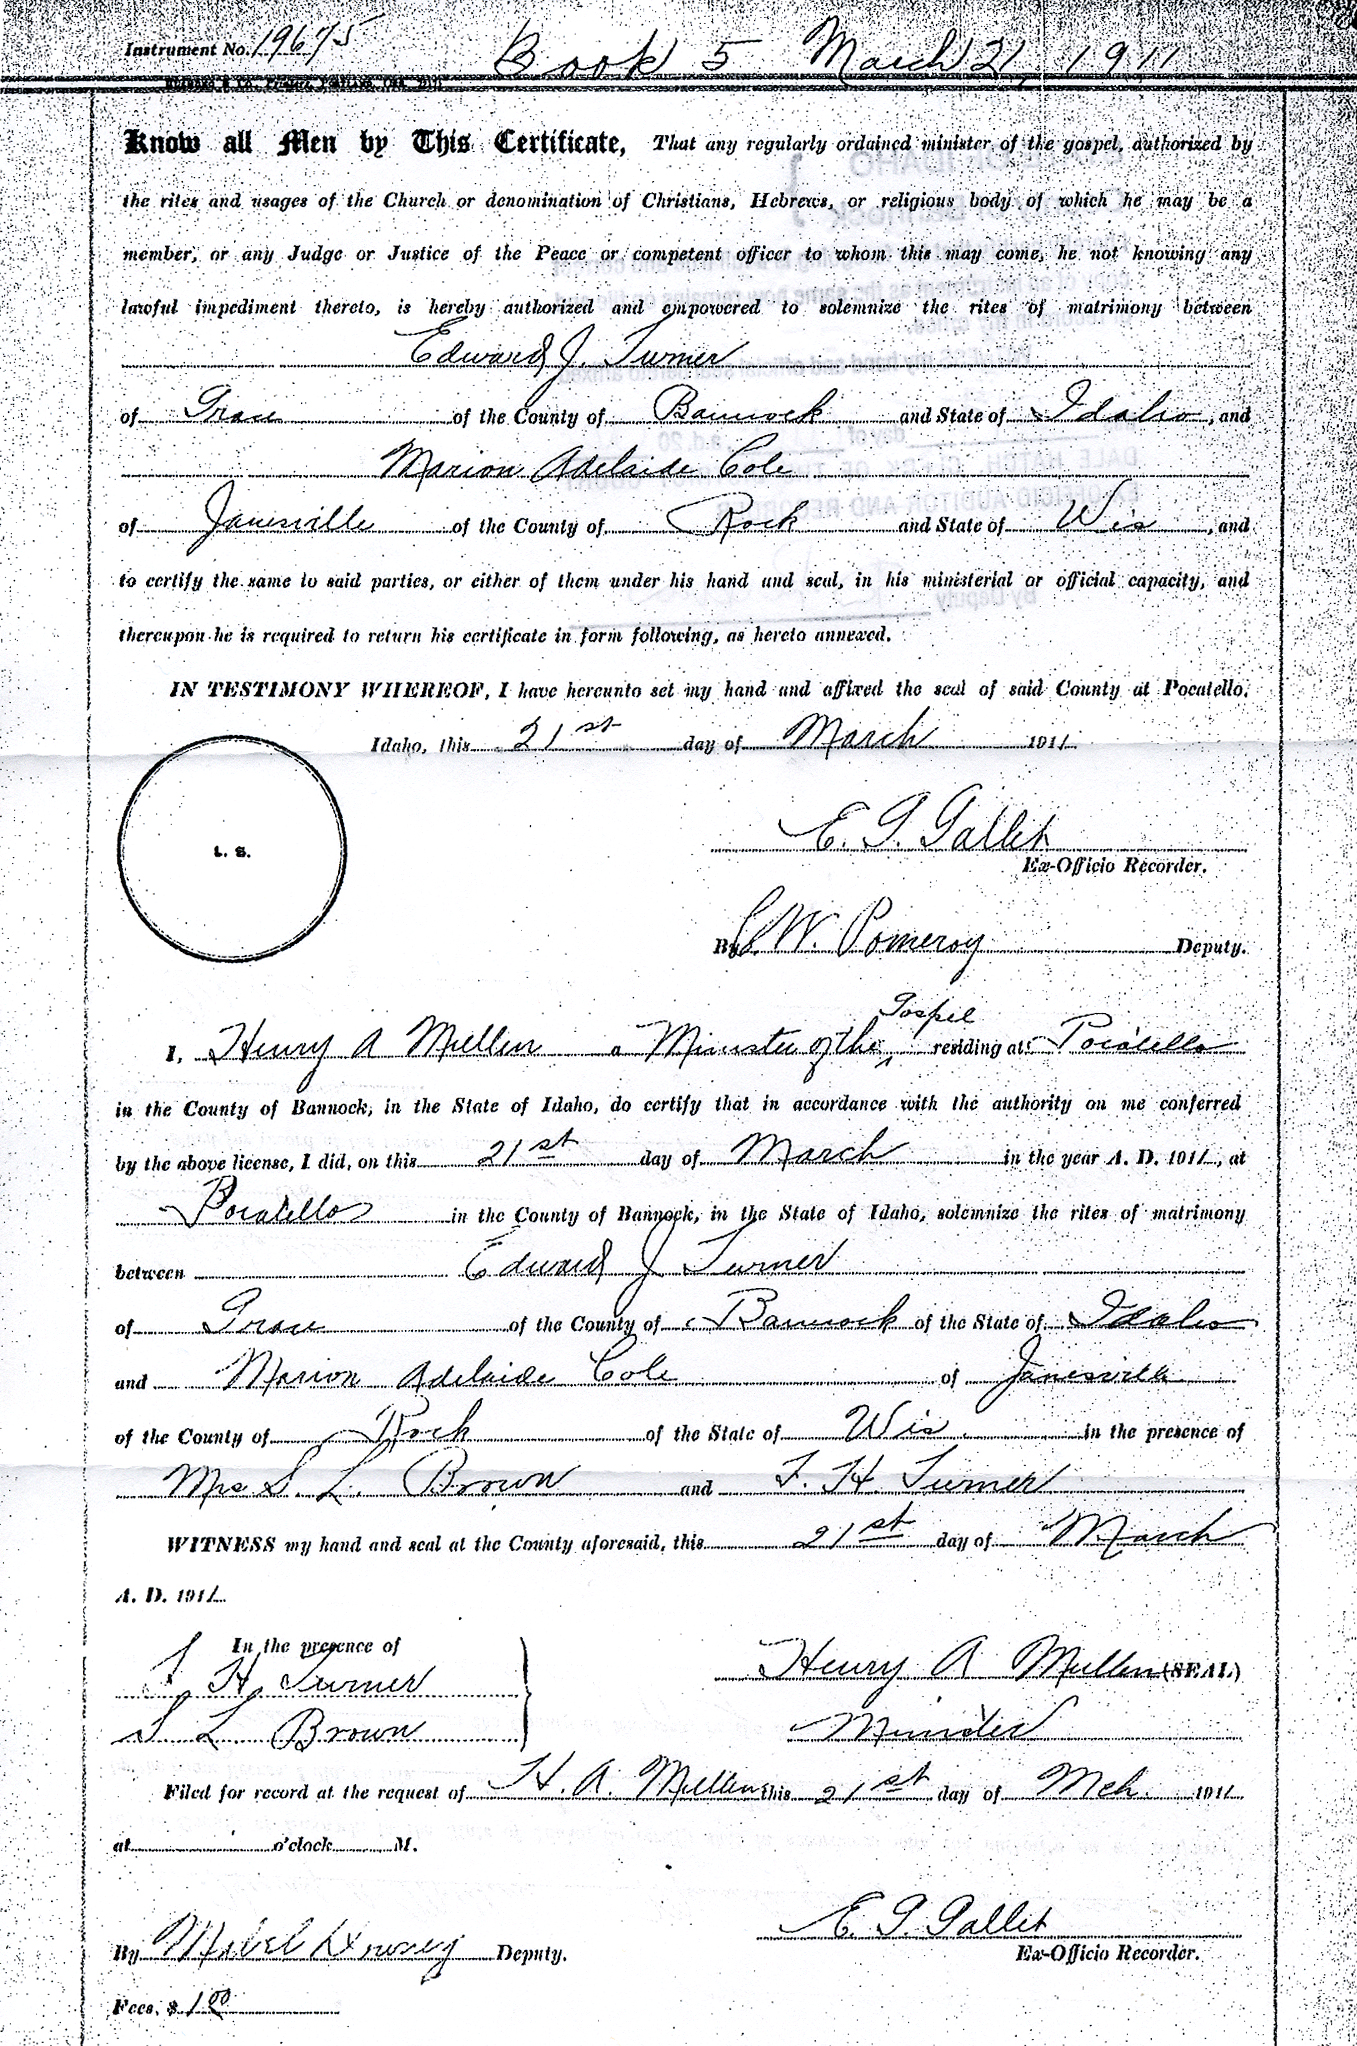 Instrument No. 19675 Book 5 March 21, 1911
Know all Men by This Certificate, That any regularly ordained minister of the gospel, authorized by
the rites and usages of the Church or denomination of Christians, Hebrews, or religious body of which he may be a
member, or any Judge or Justice of the Peace or competent officer to whom this may come, he not knowing any
lawful impediment thereto, is hereby authorized and empowered to solemnize the rites of matrimony between
Edward J. Turner
of Grace of the County of Bannock and State of Idaho, and
Marion Adelaide Cole
of Janesville of the County of Rock and State of Wis, and
to certify the same to said parties, or either of them under his hand and seal, in his ministerial or official capacity, and
thereupon he is required to return his certificate in form following, as hereto annexed.
IN TESTIMONY WHEREOF, I have hereunto set my hand and affixed the seal of said County at Pocatello,
Idaho, this 21st day of March 1911
L. S.
E. G. Gallet
Ex-Officio Recorder.
By W. Pomeroy Deputy.
Gospel
I, Henry A Mullen a Minister of the residing at Pocatello
in the County of Bannock, in the State of Idaho, do certify that in accordance with the authority on me conferred
by the above license, I did, on this 21st day of March in the year A. D. 1911, at
Pocatello in the County of Bannock, in the State of Idaho, solemnize the rites of matrimony
between Edward J Turner
of Grace of the County of Bannock of the State of Idaho
and Marion Adelaide Cole of Janesville
of the County of Rock of the State of Wis in the presence of
Mrs S. L. Brown and F. H Turner
WITNESS my hand and seal at the County aforesaid, this 21st day of March
A. D. 1911
In the presence of
F H Turner
S L Brown
Henry A Mullen (SEAL)
Minister
Filed for record at the request of H. A. Mullen this 21st day of Mch. 1911
at o'clock M.
E. G. Gallet
Ex-Officio Recorder.
By Mabel Deputy.
Fees, $ 1 00